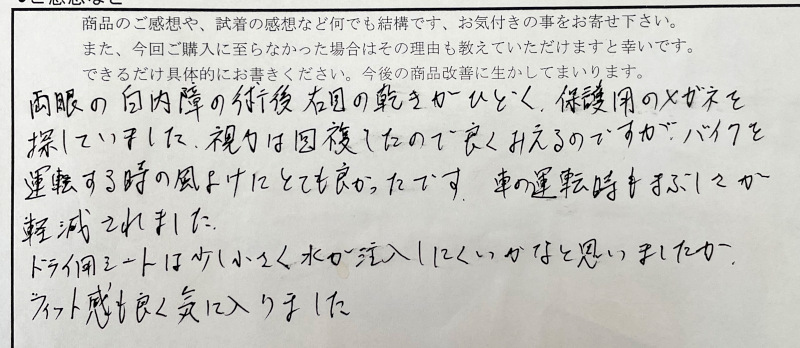 商品のご感想や、試着の感想など何でも結構です、お気付きの事をお寄せ下さい。
また、今回ご購入に至らなかった場合はその理由も教えていただけますと幸いです。
できるだけ具体的にお書きください。今後の商品改善に生かしてまいります。
両眼の白内障の術後右目の乾きがひどく、保護用のメガネを
探していました、視力は回復したので良くみえるのですが、バイクを
運転する時の風よけにとても良かったです 車の運転時もまぶしさが
軽減されました。
ドライ用シートは少し小さく水が注入しにくいかなと思いましたが、
フィット感も良く気に入りました